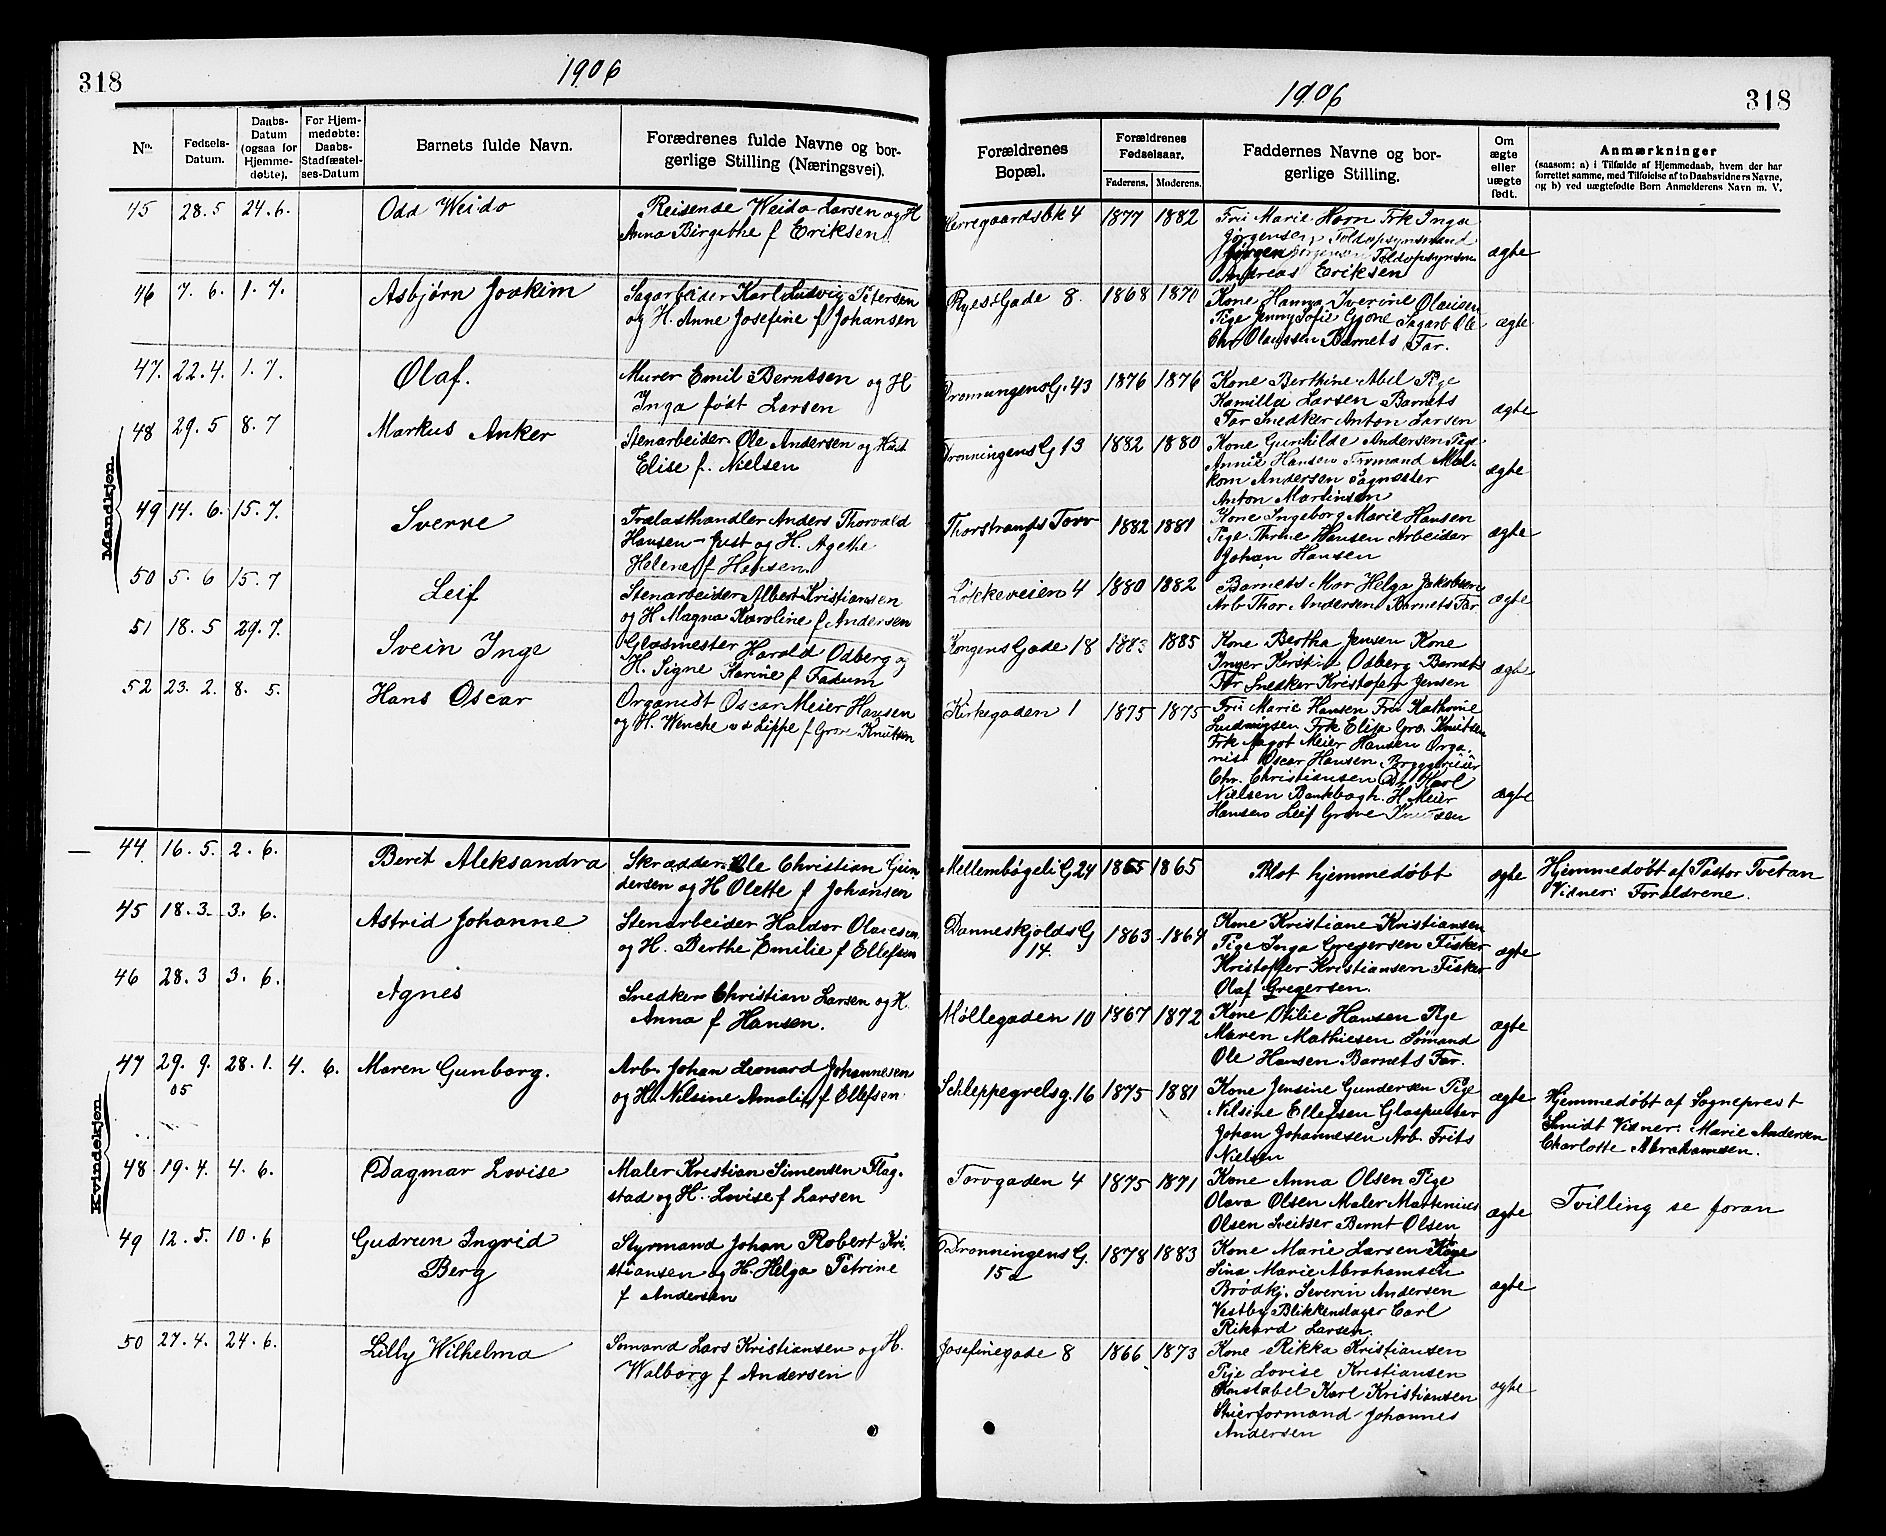 318
1906
No.
Fødsels-
Datum.
Daabs-
Datum
(ogsaa for
Hjemme-
døbte).
For Hjem-
medøbte:
Daabs-
Stadfæstel-
ses-Datum
Barnets fulde Navn.
Forædrenes fulde Navne og bor-
gerlige Stilling (Næringsvei).
Mandkjøn.
45 28.5 24.6. Odd Weido
Reisende Weido Larsen og H
Anna Birgithe f Eriksen
46 7. 6. 1. 7. Asbjørn Joakim
Sagarbeider Karl Ludvig Petersen
og H. Anne Josefine f Johansen
47. 22.4. 1. 7. Olaf.
Murer Emil Berntsen og H
Inga født Larsen
48 29.5 8.7 Markus Anker
Stenarbeider Ole Andersen og Hust
Elise f. Nielsen
49 14. 6. 15.7. Sverre
Trælasthandler Anders Thorvald
Hansen-Just og H. Agethe
Helene f Hansen
50 5. 6 15.7 Leif
Stenarbeider Albert Kristiansen
og H Magna Karoline f Andersen
51 18.5 29.7. Svein Inge
Glasmester Harald Odberg og
H. Signe Karine f Fadum
52 23. 2. 8. 5. Hans Oscar
Organist Oscar Meier Hansen
og H. Wenche v d Lippe f Grove Knutsen
Kvindekjøn.
44. 16.5. 2.6. Berit Aleksandra
Skrædder Ole Christian Gun
dersen og H Olette f Johansen
45 18.3. 3.6. Astrid Johanne
Stenarbeider Haldor Olausen
og H. Berthe Emilie f Ellefsen
46 28.3 3.6. Agnes
Snedker Christian Larsen og H.
Anna f Hansen.
47 29.9. 28.1. 4. 6. Maren Gunborg.
05
Arb. Johan Leonard Johannesen
og H. Nilsine Amalie f Ellefsen
48 19.4. 4.6. Dagmar Lovise
Maler Kristian Simensen Flag-
stad og H. Lovise f Larsen
49 12.5. 10.6 Gudrun Ingrid
Berg
Styrmand Johan Robert Kri-
stiansen og H. Helga Petrine
f Andersen
50 27.4. 24.6. Lilly Wilhelma
Sømand Lars Kristiansen og H.
Walborg f Andersen
1906
318
Forældrenes
Bopæl.
Forældrenes
Fødselsaar.
Faderens. Moderens.
Faddernes Navne og bor-
gerlige Stilling.
Om
ægte
eller
uægte
født.
Anmærkninger
(saasom: a) i Tilfælde af Hjemmedaab, hvem der har
forrettet samme, med Tilføielse af to Daabsvidners Navne,
og b) ved uægtefødte Børn Anmelderens Navn m. V.
Herregaardsbk 4 1877 1882 Fru Marie Horn Frk Inga
Jørgensen Toldopsynsmand
Jørgen Jørgensen Toldopsynsm
Andreas Eriksen
ægte
RyesGade 8. 1868 1870 Kone Hanna Iverine Olausen
Pige Jenny Sofie Gjone Sagarb Ole
Chr. Olaussen Barnets Far.
ægte
DronningensG. 43 1876 1876 Kone Berthine Abel Pige
Kamilla Larsen Barnets
Far Snedker Anton Larsen
ægte
DronningensG 13 1882 1880 Kone Gunhilde Andersen Pige
Annie Hansen Formand Mal-
kom Andersen Sagmester
Anton Martinsen
ægte
Thorstrands Torv 1882 1881 Kone Ingeborg Marie Hansen
Pige Thrine Hansen Arbeider
Johan Hansen
ægte
Løkkeveien 4 1880 1882 Barnets Mor Helga Jakobsen
Arb Thor Andersen Barnets Far
ægte
KongensGade 18 1883 1885 Kone Bertha Jensen Kone
Inger Kirstin Odberg Barnets
Far Snedker Kristofer Jensen
ægte
Kirkegaden 1 1875 1875 Fru Marie Hansen Fru Kathrine
Ludvigsen Frk Elisa Gro. Knutsen
Frk Aagot Meier Hansen Orga-
nist Oscar Hansen Bryggerieier
Chr. Christiansen Dr. Karl
Nielsen Bankbogh. H. Meier
Hansen Leif Grove Knutsen
ægte
Mellembøgeli G 24 1865 1865 Blot hjemmedøbt ægte
Hjemmedøbt af Pastor Tvetan
Vidner: Forældrene.
DanneskjoldsG
14. 1863 1864 Kone Kristiane Kristiansen
Pige Inga Gregersen Fisker
Kristoffer Kristiansen Fisker
Olaf Gregersen.
ægte
Møllegaden 10 1867 1872 Kone Otilie Hansen Pige
Maren Mathiesen Sømand
Ole Hansen Barnets Far.
ægte
Schleppegrelsg. 16 1875 1881 Kone Jensine Gundersen Pige
Nilsine Ellefsen Glaspuster
Johan Johannesen Arb. Frits
Nielsen
ægte
Hjemmedøbt af Sogneprest
Smidt Vidner: Marie Andersen
Charlotte Abrahamsen.
Torvgaden 4 1875 1871 Kone Anna Olsen Pige
Olava Olsen Maler Martinius
Olsen Sveitser Bernt Olsen
ægte
Tvilling se foran
DronningensG.
15a 1878 1883 Kone Marie Larsen Pige
Sina Marie Abrahamsen
Brødkj. Severin Andersen
Vestby Blikkenslager Carl
Rikard Larsen.
ægte
Josefinegade 8 1866 1873 Kone Rikka Kristiansen
Pige Lovise Kristiansen
Konstabel Karl Kristiansen
Stuerformand Johannes
Andersen
ægte